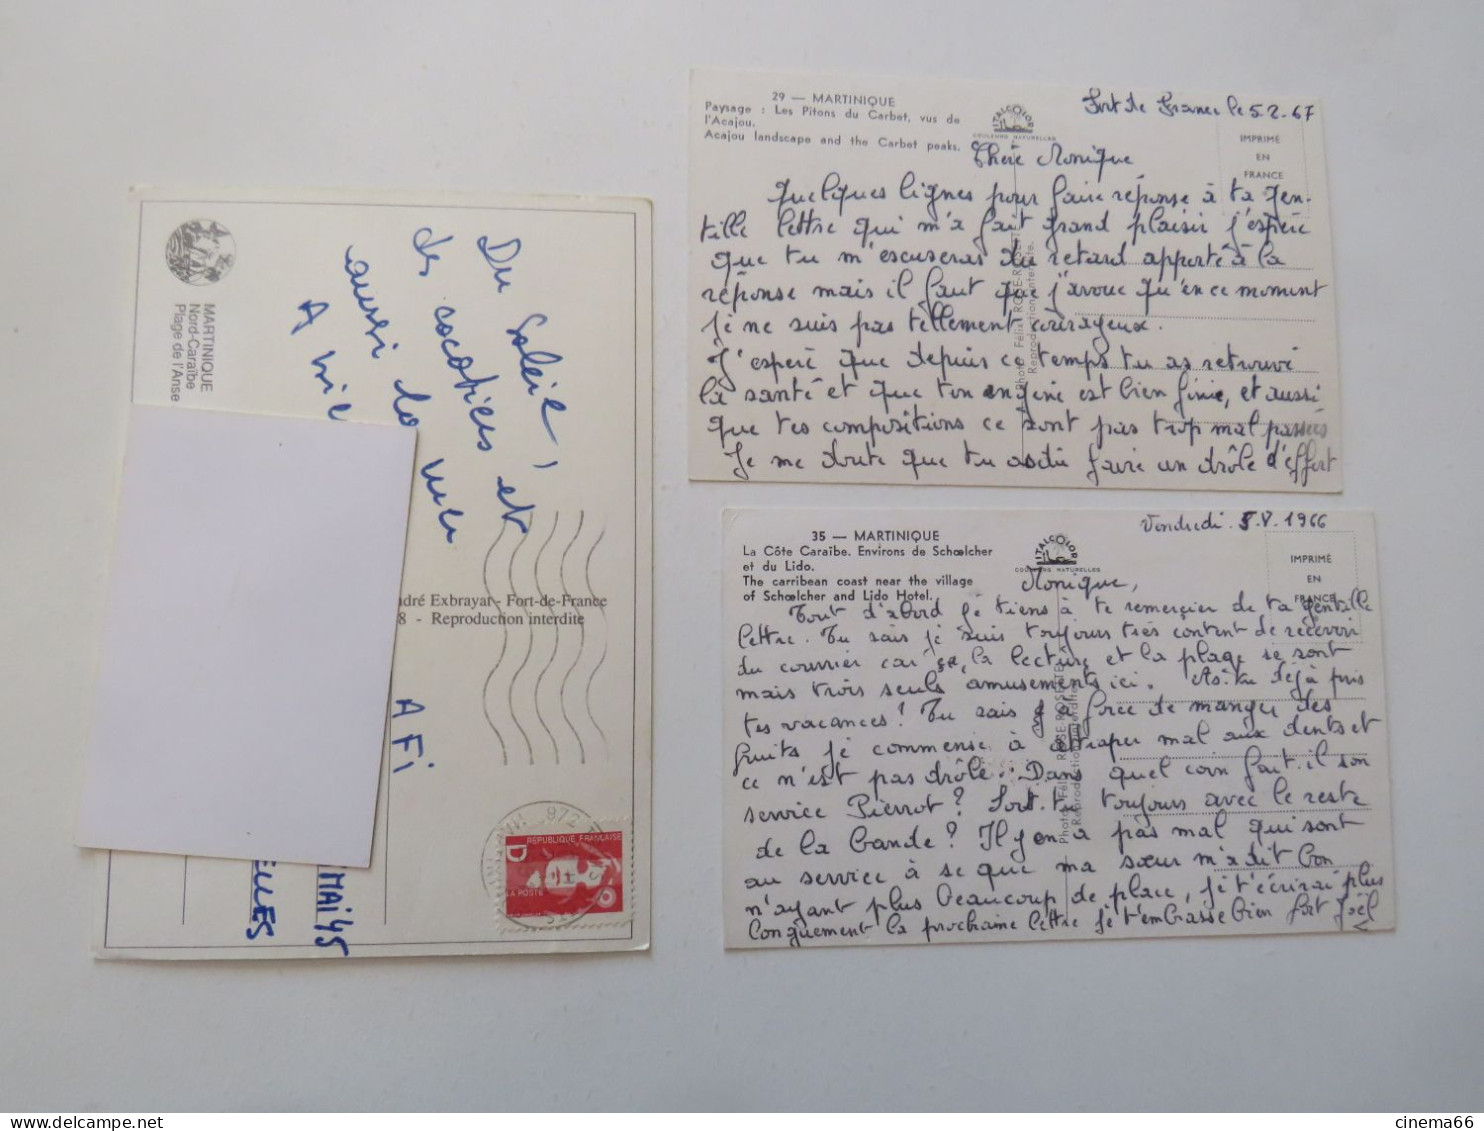 MARTINIQUE
Nord-Caraïbe
Plage de l'Anse
Du Soleil,
des cocotiers et
aussi la
A
ndré Exbrayat - Fort-de-France
8 - Reproduction interdite
A
Fi
MAI 45
ELLES
972
RÉPUBLIQUE FRANÇAISE
D
LA POSTE
29 — MARTINIQUE
Paysage : Les Pitons du Carbet, vus de
l'Acajou.
Acajou landscape and the Carbet peaks.
ITALCOLOR
COULEURS NATURELLES
Fort de France le 5.2.67
IMPRIMÉ
EN
FRANCE
Chère Monique
Quelques lignes pour faire réponse à ta gen-
tille lettre qui m'a fait grand plaisir j'espère
que tu m'escuseras du retard apporté à la
réponse mais il faut que j'avoue qu'en ce moment
je ne suis pas tellement courageux.
J'espère que depuis ce temps tu as retrouvé
la santé et que ton angine est bien finie, et aussi
que tes compositions ce sont pas trop mal passés
Je me doute que tu as dû faire un drôle d'effort
Photo Félix ROSE-ROSETTE
Reproduction interdite.
35 — MARTINIQUE
La Côte Caraïbe. Environs de Schœlcher
et du Lido.
The carribean coast near the village
of Schœlcher and Lido Hotel.
ITALCOLOR
COULEURS NATURELLES
Vendredi 5.V.1966
IMPRIMÉ
EN
FRANCE
Monique,
Tout d'abord je tiens à te remercier de ta gentille
lettre. Tu sais je suis toujours très content de recevoir
du courrier car la lecture et la plage se sont
mais trois seuls amusements ici. As-tu déjà pris
tes vacances? Tu sais à force de manger des
fruits je commense à attraper mal aux dents et
ce n'est pas drôle. Dans quel coin fait-il son
service Pierrot? Sort-tu toujours avec le reste
de la bande? Il y en a pas mal qui sont
au service à se que ma sœur m'a dit bon
n'ayant plus beaucoup de place, je t'écrirai plus
longuement la prochaine lettre je t'embrasse bien fort Joël
Photo Félix ROSE-ROSETTE
Reproduction interdite.
cinema66